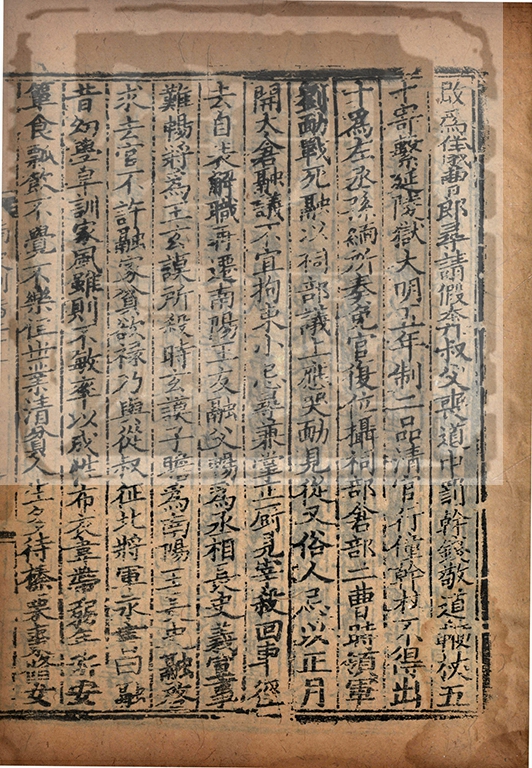 改為儀曹郎尋請假奔叔父喪道中罰幹錢敬道鞭杖五
十寄繫延陵獄大明五年制二品清官行僮幹杖不得出
十為左丞孫緬所奏免官復位攝祠部倉部二曹時領軍
劉勔戰死融以祠部議上應哭勔見從又俗人忌以正月
開太倉融議不宜拘束小忌尋兼掌正廚見宰殺回車徑
去自表解職再遷南陽王友融父暢為丞相長史義宣事
難暢將為王玄謨所殺時玄謨子瞻為南陽王長史融啓
求去官不許融家貧欲祿乃與從叔征北將軍永書曰融
昔幼學早訓家風雖則不敏率以成性布衣韋帶弱年所安
簞食瓢飲不覺不樂但世業清貧人生多待榛栗棗脩女